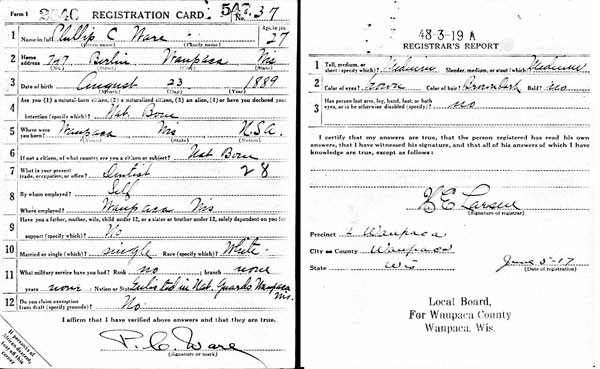 Form 1 3640 REGISTRATION CARD No. 37
1 Name in full Phillip C Ware Age, in yrs. 27
(Given name) (Family name)
2 Home address 747 Berlin Waupaca Wis
(No.) (Street) (City) (State)
3 Date of birth August 23 1889
(Month) (Day) (Year)
4 Are you (1) a natural-born citizen, (2) a naturalized citizen, (3) an alien, (4) or have you declared your
intention (specify which)? Nat. Born
5 Where were you born? Waupaca Wis U.S.A.
(Town) (State) (Nation)
6 If not a citizen, of what country are you a citizen or subject? Nat Born
7 What is your present trade, occupation, or office? Dentist 28
8 By whom employed? Self
Where employed? Waupaca Wis
9 Have you a father, mother, wife, child under 12, or a sister or brother under 12, solely dependent on you for
support (specify which)? No
10 Married or single (which)? single Race (specify which)? White
11 What military service have you had? Rank no ; branch none
years none ; Nation or State Enlisted in Nat. Guards Waupaca Wis.
12 Do you claim exemption from draft (specify grounds)? No
I affirm that I have verified above answers and that they are true.
P. C. Ware
(Signature or mark)
If person is of African descent, tear off this corner
48-3-19 A
REGISTRAR'S REPORT
1 Tall, medium, or short (specify which)? Medium Slender, medium, or stout (which)? Medium
2 Color of eyes? Brown Color of hair? Brown Dark Bald? no
3 Has person lost arm, leg, hand, foot, or both eyes, or is he otherwise disabled (specify)? no
I certify that my answers are true, that the person registered has read his own
answers, that I have witnessed his signature, and that all of his answers of which I have
knowledge are true, except as follows:
H E Larsen
(Signature of registrar)
Precinct Waupaca
City or County Waupaca
State Wis June 5-17
(Date of registration)
Local Board,
For Waupaca County
Waupaca, Wis.